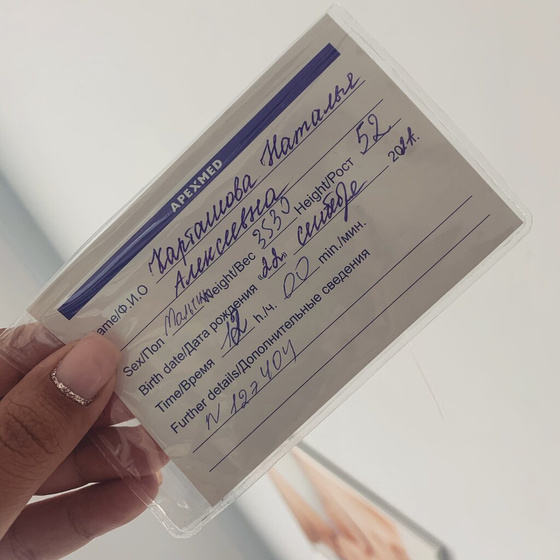 APEXMED
ame/Ф.И.О Карташова Наталья
Алексеевна
Sex/Пол Мальчик Weight/Вес 3530 Height/Рост 52
Birth date/Дата рождения "22" сентября 2021.
Time/Время 12 h./ч. 00 min./мин.
Further details/Дополнительные сведения
N 127404